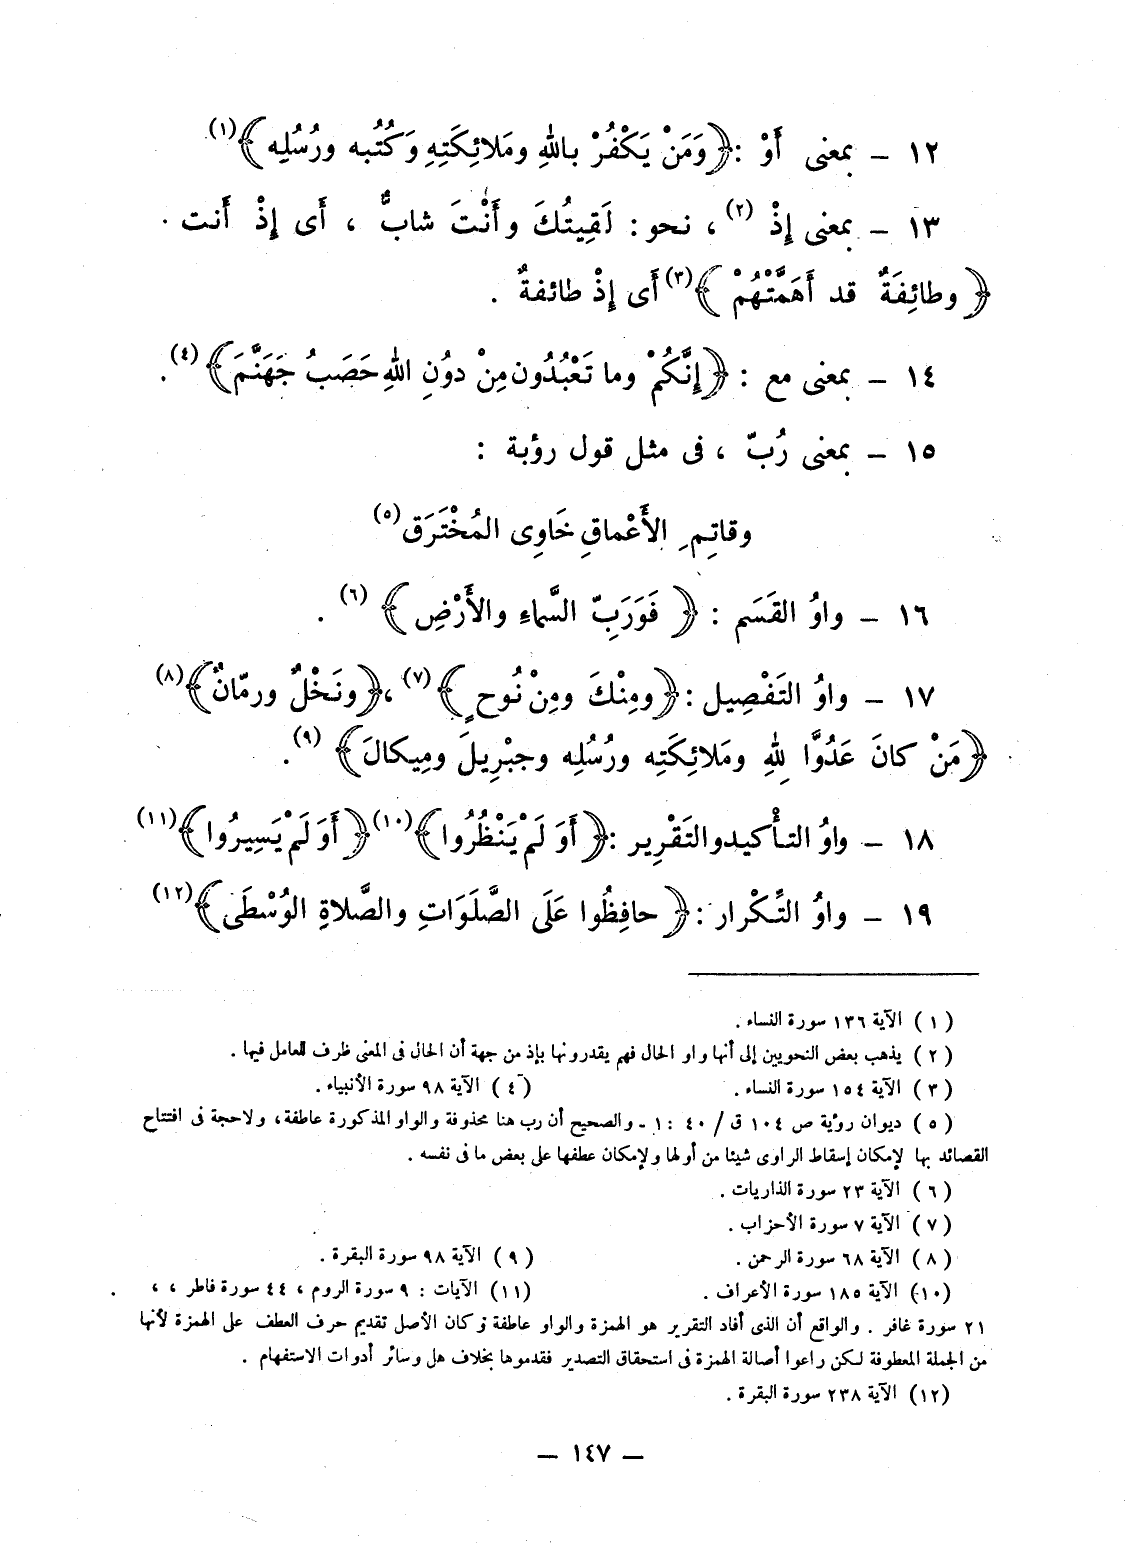 ١٢ – بمعنى أَوْ : ﴿ وَمَنْ يَكْفُرْ بِاللهِ ومَلائِكَتِهِ وَكُتُبه ورُسُلِه ﴾(١)
١٣ – بمعنى إِذْ (٢) ، نحو : لَقِيتُكَ وأَنْتَ شابٌّ ، أَى إِذْ أَنت .
﴿ وطائِفَةٌ قد أَهَمَّتْهُمْ ﴾(٣) أَى إِذْ طائفةٌ .
١٤ – بمعنى مع : ﴿ إِنَّكُمْ وما تَعْبُدُون مِنْ دوُنِ اللهِ حَصَبُ جَهَنَّمَ ﴾(٤).
١٥ – بمعنى رُبّ ، فى مثل قول رؤبة :
وقاتِمِ الأَعْماقِ خَاوِى المُخْتَرَق(٥)
١٦ – واوُ القَسَم : ﴿ فَوَرَبِّ السَّماءِ والأَرْضِ ﴾ (٦) .
١٧ – واوُ التَفْصِيل : ﴿ ومِنْكَ ومِنْ نُوحٍ ﴾(٧) ،﴿ ونَخْلٌ ورمّانٌ ﴾(٨)
﴿ مَنْ كانَ عَدُوًّا لِلهِ ومَلائِكَتِه ورُسُلِه وجبْرِيلَ ومِيكالَ ﴾ (٩) .
١٨ – واوُ التأْكيد والتَقْرِير : ﴿ أَوَ لَمْ يَنْظُرُوا ﴾(١٠) ﴿ أَوَ لَمْ يَسِيرُوا ﴾(١١)
١٩ – واوُ التَّكْرار : ﴿ حافِظُوا عَلَى الصَّلَوَاتِ والصَّلاةِ الوُسْطَى ﴾(١٢)
(١) الآية ١٣٦ سورة النساء .
(٢) يذهب بعض النحويين إلى أنها واو الحال فهم يقدرونها بإذ من جهة أن الحال فى المعنى ظرف للعامل فيها .
(٣) الآية ١٥٤ سورة النساء . (٤) الآية ٩٨ سورة الأنبياء .
(٥) ديوان رؤبة ص ١٠٤ ق / ٤٠ : ١ – والصحيح أن رب هنا محذوفة والواو المذكورة عاطفة ، ولا حجة فى افتتاح
القصائد بها لإمكان إسقاط الراوى شيئا من أولها ولإمكان عطفها على بعض ما فى نفسه .
(٦) الآية ٢٣ سورة الذاريات .
(٧) الآية ٧ سورة الأحزاب .
(٨) الآية ٦٨ سورة الرحمن . (٩) الآية ٩٨ سورة البقرة .
(١٠) الآية ١٨٥ سورة الأعراف . (١١) الآيات : ٩ سورة الروم ، ٤٤ سورة فاطر ، ،
٢١ سورة غافر . والواقع أن الذى أفاد التقرير هو الهمزة والواو عاطفة وكان الأصل تقديم حرف العطف على الهمزة لأنها
من الجملة المعطوفة لكن راعوا أصالة الهمزة فى استحقاق التصدير فقدموها بخلاف هل وسائر أدوات الاستفهام .
(١٢) الآية ٢٣٨ سورة البقرة .
– ١٤٧ –